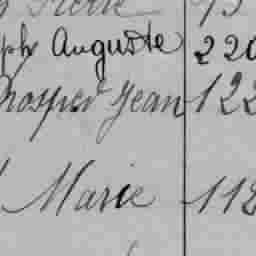 Pierre 93
ph Auguste 220
Prosper Jean 122
Marie 112